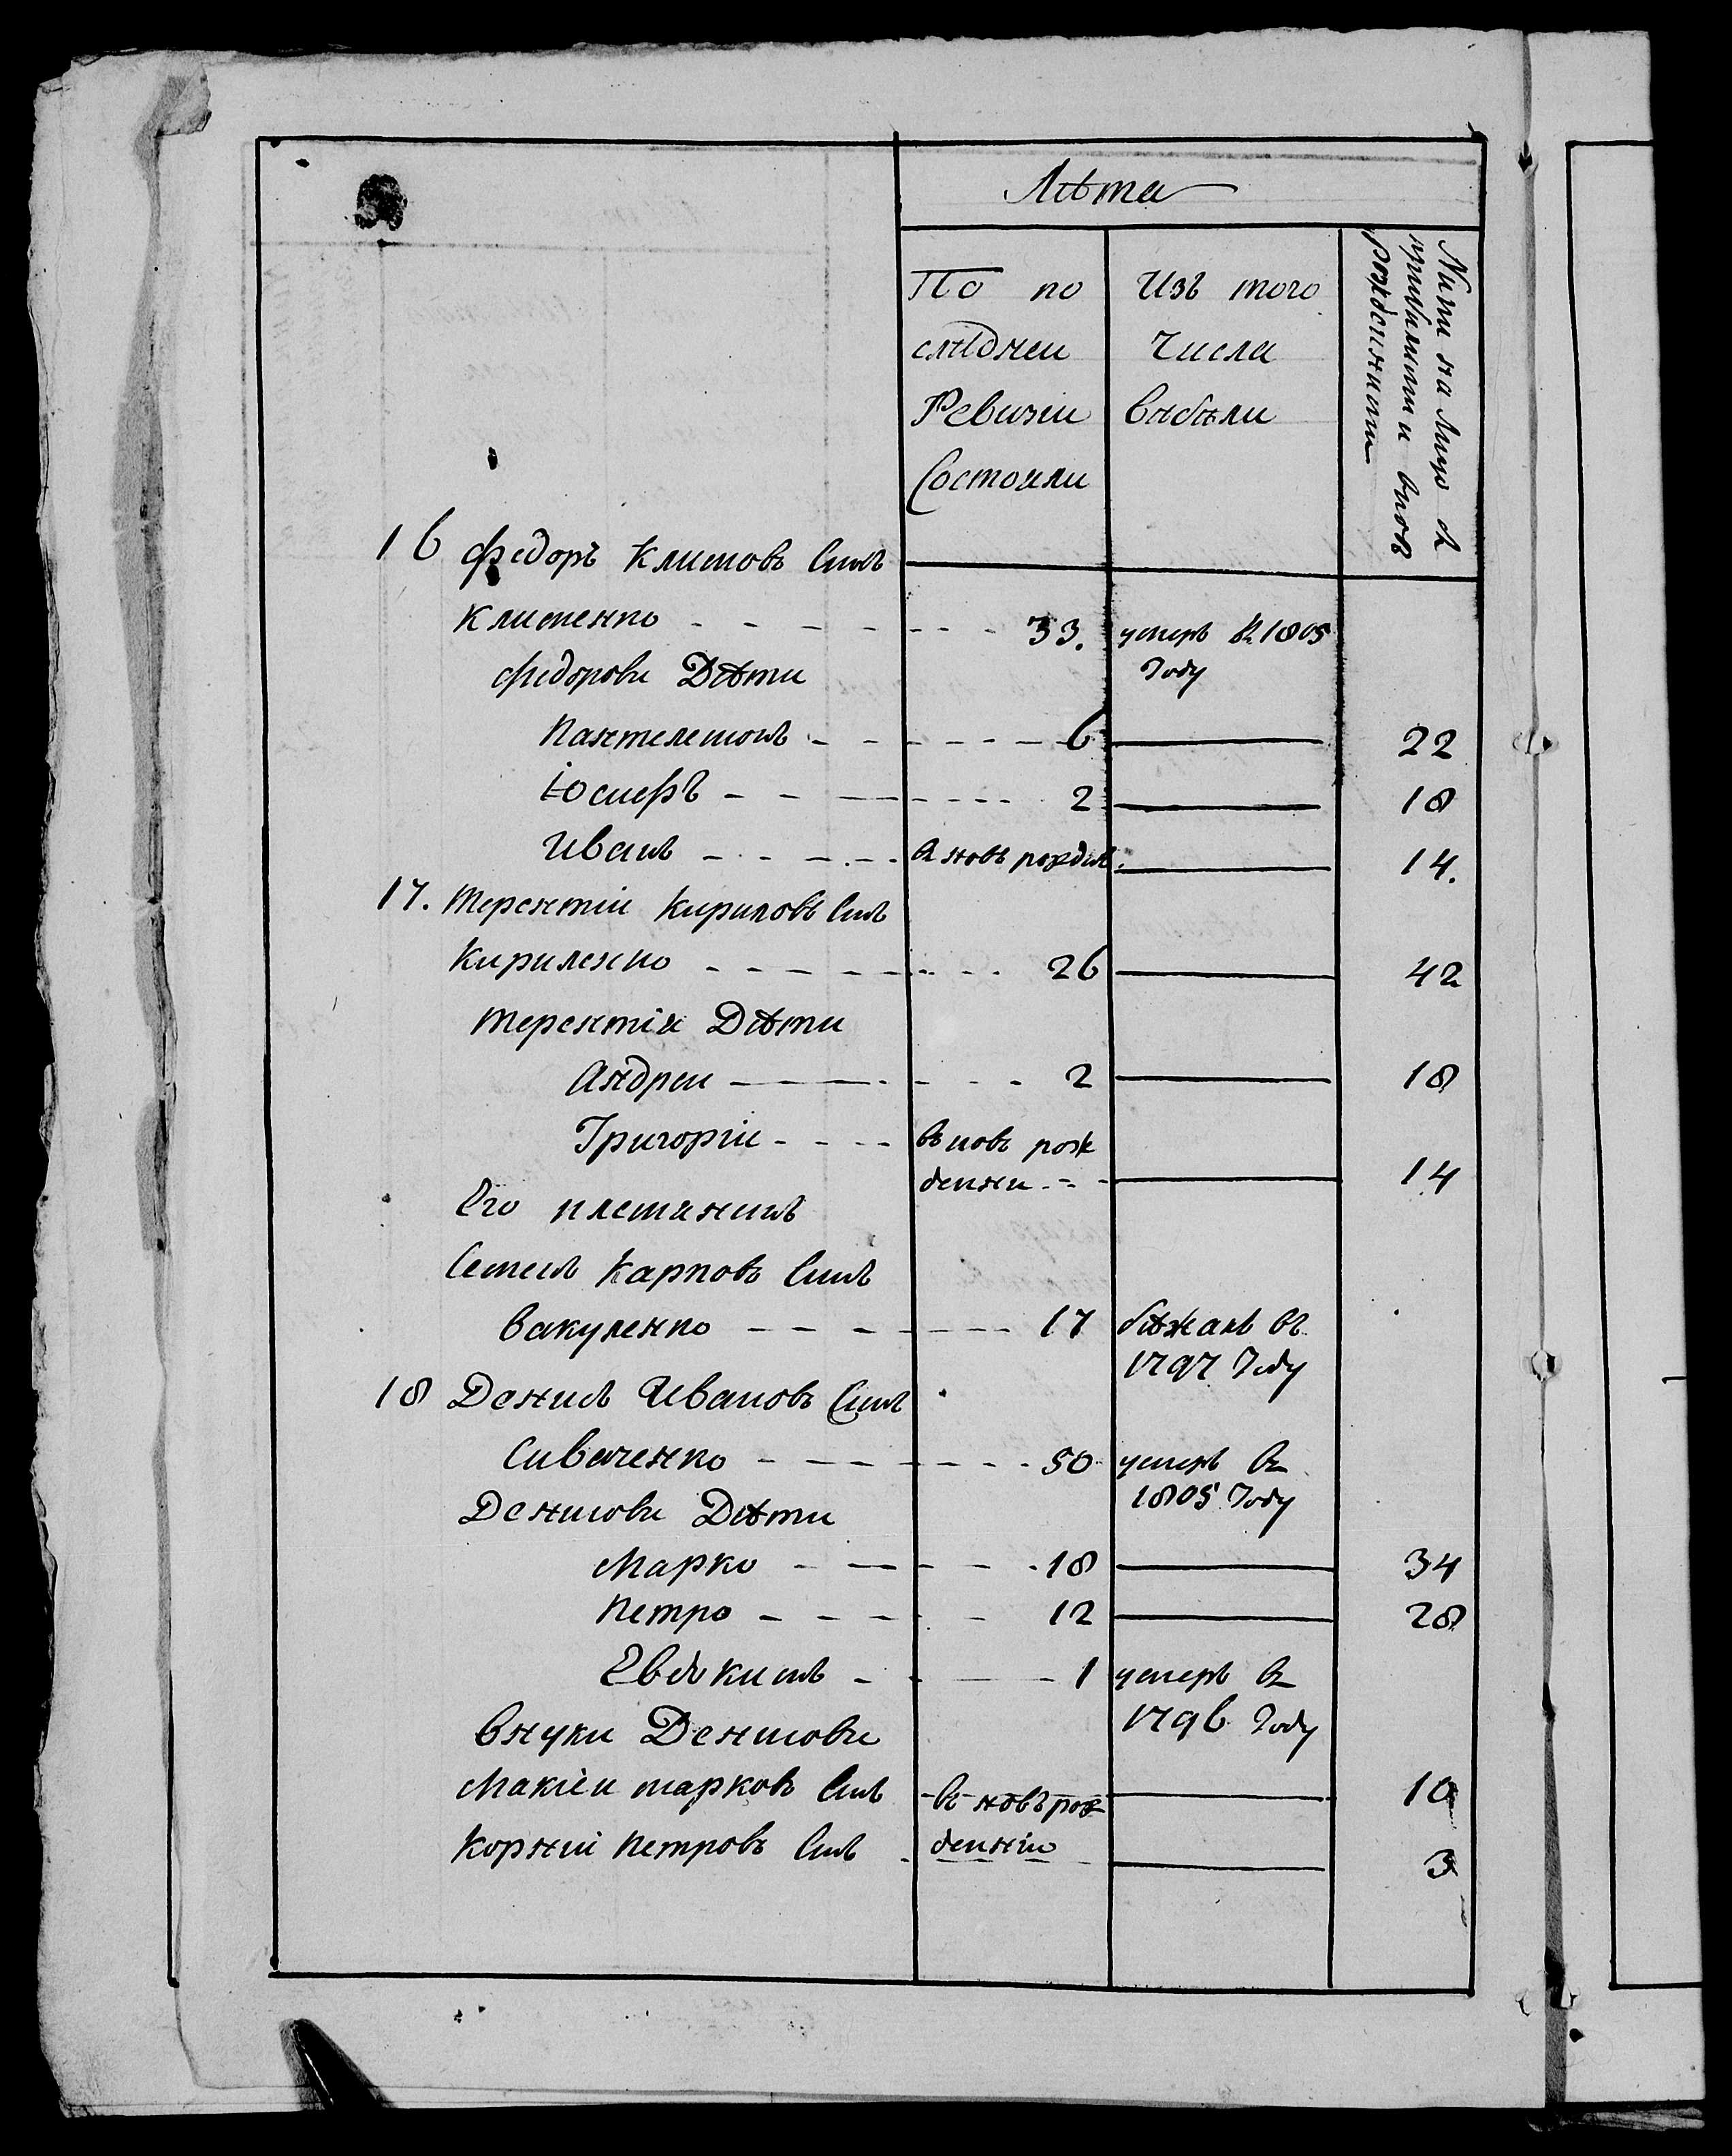 Лѣта
По по
слѣднеи
Ревизіи
Состояли
Изъ того
Числа
выбыли
Ныни на лицо съ
прибылыми и вновь
рожденными
16 Федоръ Климовъ Сынъ
Клименко - - - - - - - - 33. умеръ въ 1805
Году
Федоровы Дѣти
Пантелемонъ - - - - - - 6 — 22
Іосифъ - - - - - - - 2 — 18
Иванъ - - - - - въ новь рожден. — 14.
17. Терентіи Кириловъ Сынъ
Кириленко - - - - - - - - 26 — 42
Терентія Дѣти
Андреи - - - - - - 2 — 18
Григоріи - - - - въ новь рож
денны - - — 14
Его племянникъ
Семенъ Карповъ Сынъ
Вакуленко - - - - - - - 17 бѣжалъ въ
1797 Году
18 Денисъ Ивановъ Сынъ
Сиваченко - - - - - - - 50 умеръ въ
1805 Году
Денисовы Дѣти
Марко - - - - - 18 — 34
Петро - - - - - 12 — 28
Евдокимъ - - - - 1 умеръ въ
1796 Году
Внуки Денисовы
Макіеи Марковъ Сынъ - въ новь рож — 10
Корніи Петровъ Сынъ - денніи - — 3